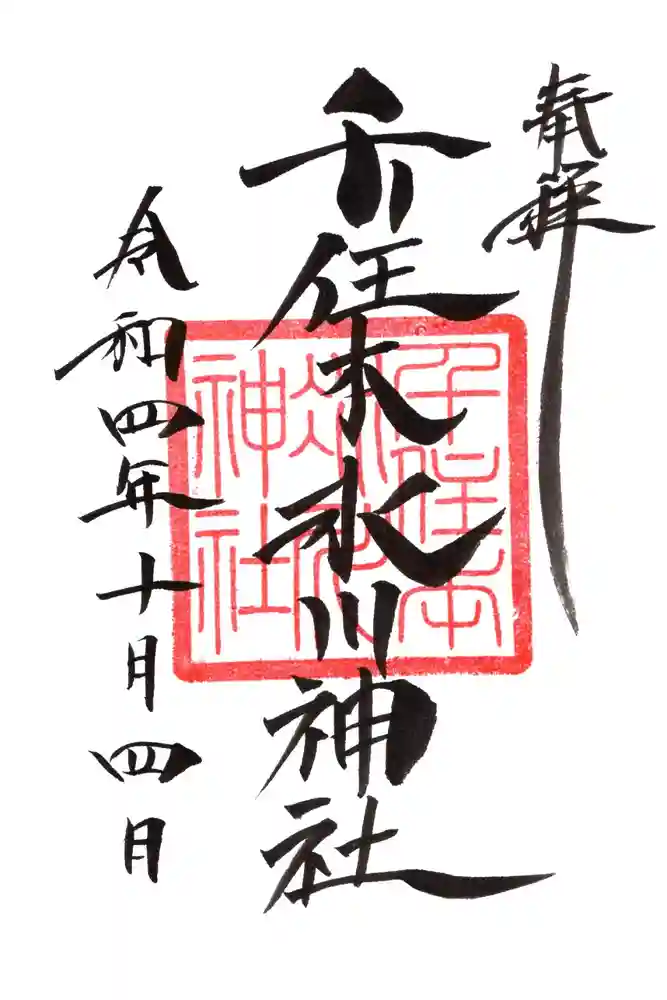 奉拝
千住本氷川神社
千住本
氷川
神社
令和四年十月四日